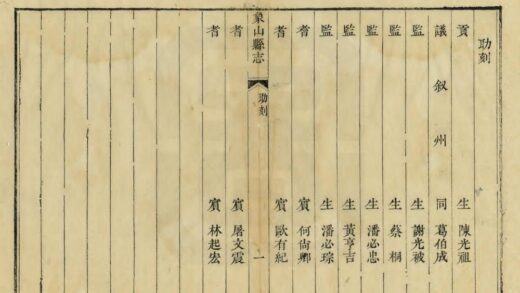 助刻
貢生陳光祖
議叙州同葛伯成
監生謝光被
監生蔡桐
監生潘必忠
監生黃亨吉
監生潘必琮
耆賓何尚卿
耆賓歐有紀
象山縣志
助刻
一
耆賓屠文震
耆賓林起宏